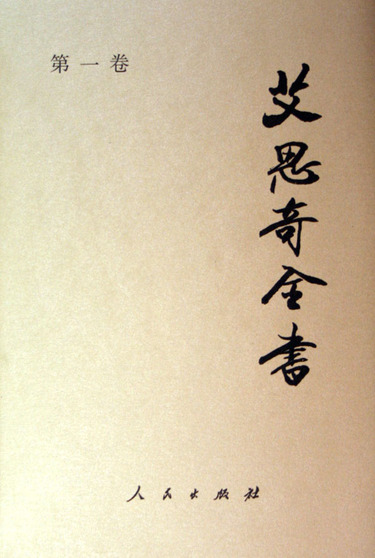 第一卷
艾思奇全书
人民出版社